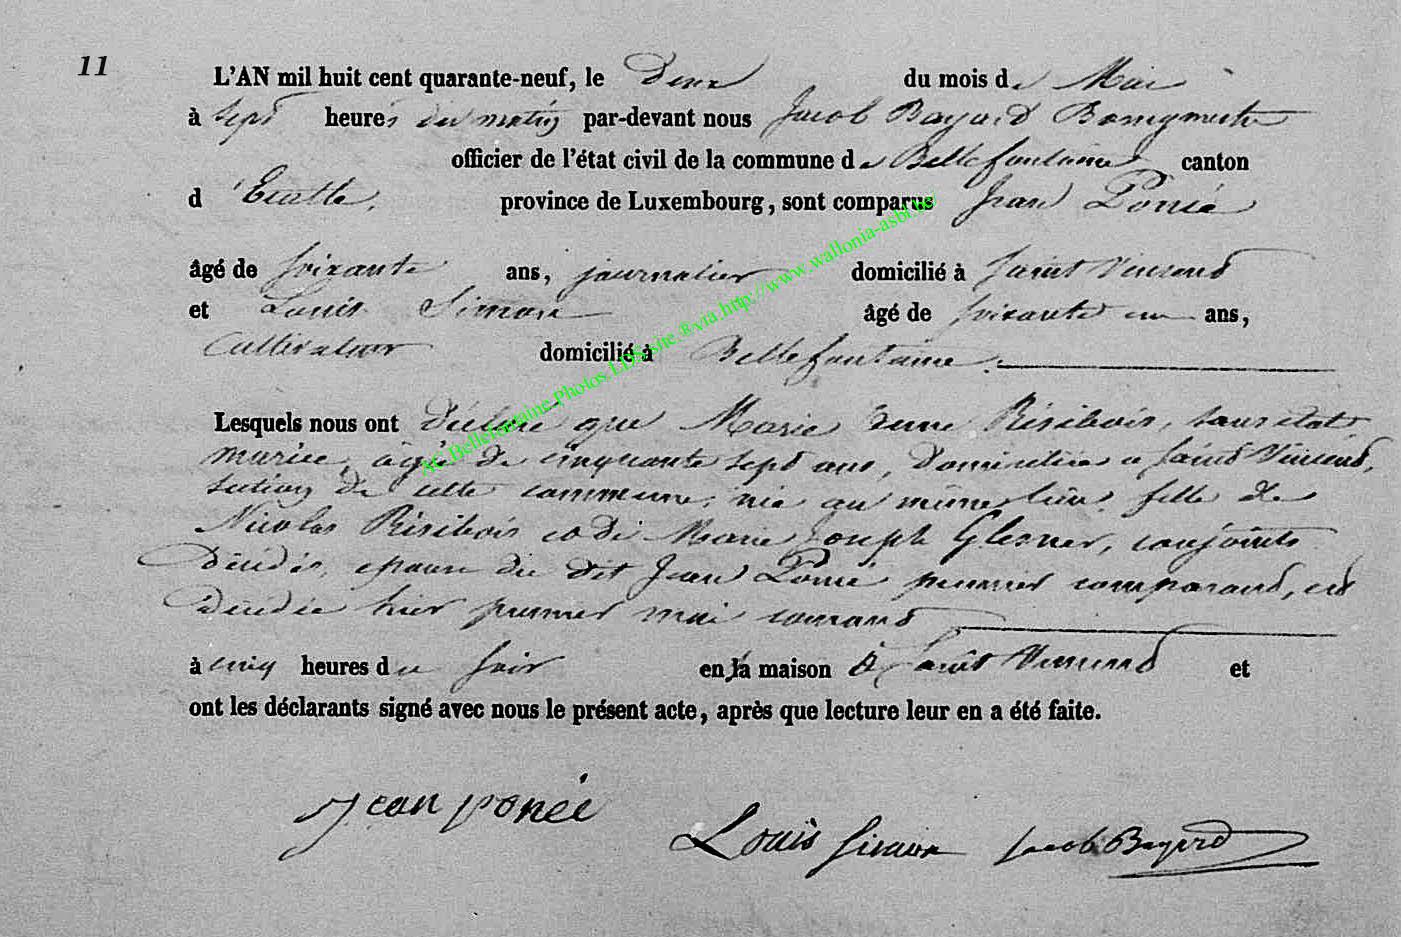 11
L'AN mil huit cent quarante-neuf, le Deux du mois de Mai
à sept heures du matin par-devant nous Jacob Bayard Bourgmestre
officier de l'état civil de la commune de Bellefontaine canton
d'Etalle, province de Luxembourg, sont comparus Jean Poncé
âgé de soixante ans, journalier domicilié à Saint Vincent
et Louis Simon âgé de soixante un ans,
Cultivateur domicilié à Bellefontaine.
Lesquels nous ont déclaré que Marie Résibois, sans état
mariée, âgée de cinquante sept ans, domiciliée à Saint Vincent,
section de cette commune, née au même lieu, fille de
Nicolas Résibois et de Marie Joseph Glesner, conjoints
décédés, épouse du dit Jean Poncé premier comparant, est
décédée hier premier mai courant
à cinq heures du soir en sa maison à Saint Vincent et
ont les déclarants signé avec nous le présent acte, après que lecture leur en a été faite.
Jean poncé
Louis Simon Jacob Bayard
AC Bellefontaine Photos LDS site ® via http://www.wallonia-asbl.be/